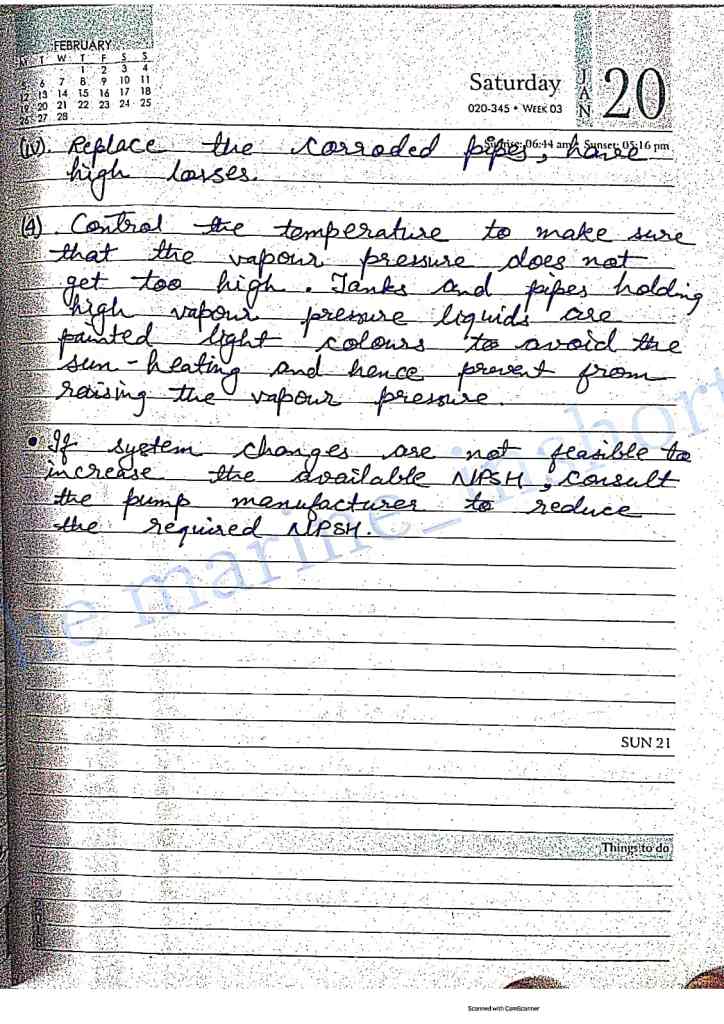 FEBRUARY
M T W T F S S
1 2 3 4
5 6 7 8 9 10 11
12 13 14 15 16 17 18
19 20 21 22 23 24 25
26 27 28
Saturday
020-345 • WEEK 03
JAN
20
Sunrise: 06:44 am / Sunset: 05:16 pm
(iv). Replace the corroded pipes, have
high losses.
(4). Control the temperature to make sure
that the vapour pressure does not
get too high. Tanks and pipes holding
high vapour pressure liquids are
painted light colours to avoid the
sun-heating and hence prevent from
raising the vapour pressure.
• If system changes are not feasible to
increase the available NPSH, consult
the pump manufacturer to reduce
the required NPSH.
he marine_inshort
SUN 21
Things to do
Scanned with CamScanner